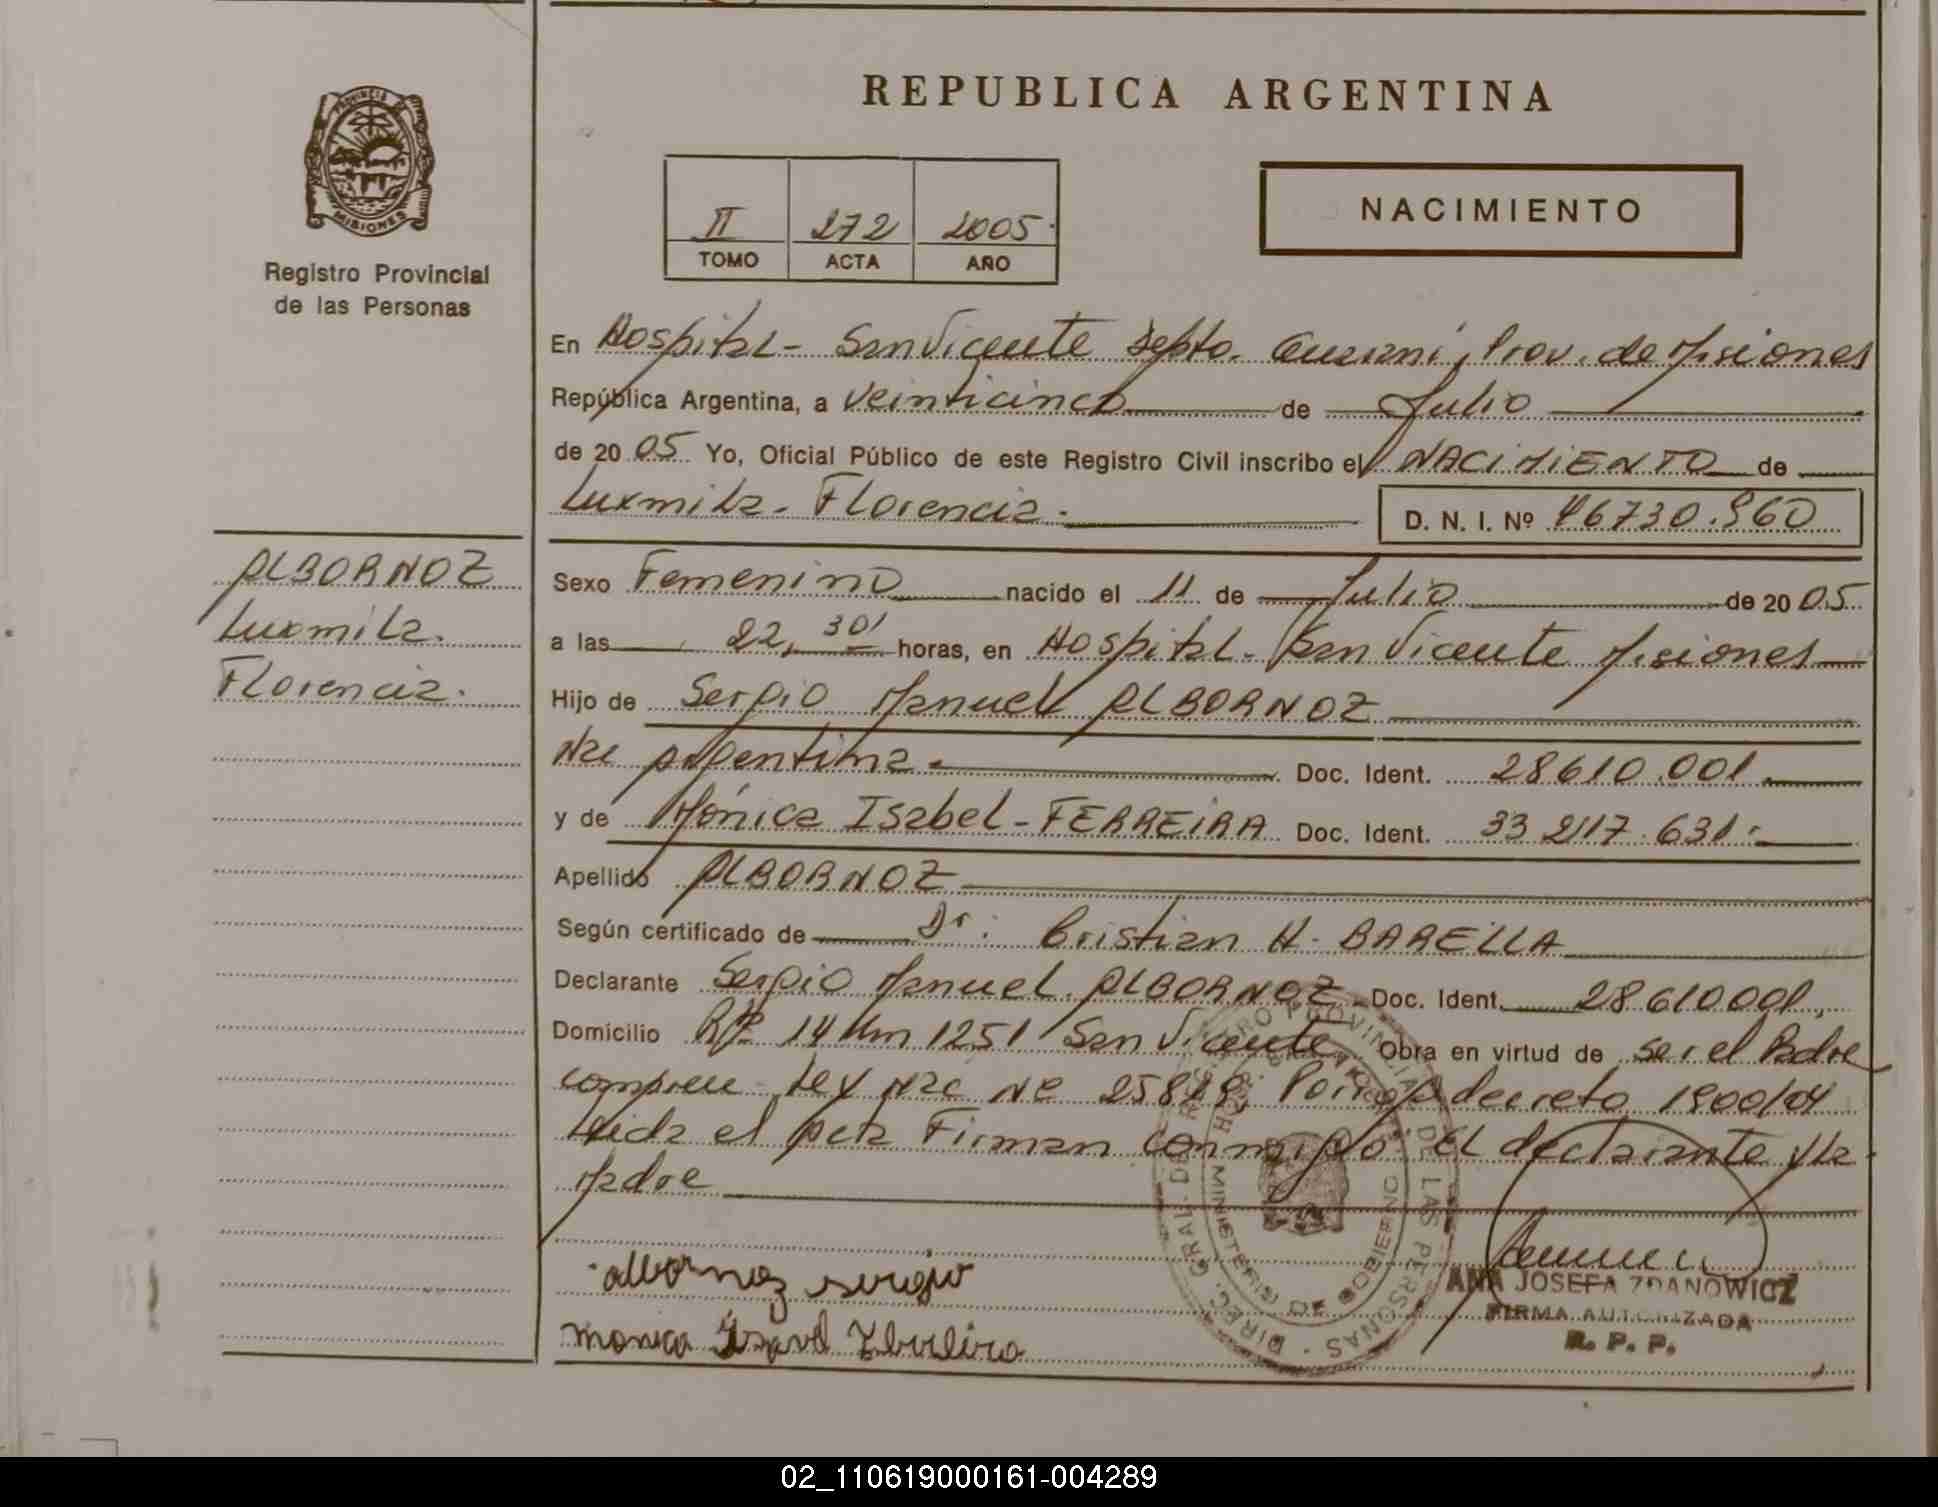 REPUBLICA ARGENTINA
PROVINCIA DE MISIONES
Registro Provincial
de las Personas
II 272 2005
TOMO ACTA AÑO
NACIMIENTO
En Hospital - San Vicente Depto. Guaraní, Prov. de Misiones
República Argentina, a veinticinco de Julio
de 2005 Yo, Oficial Público de este Registro Civil inscribo el NACIMIENTO de
Luxmila - Florencia. D. N. I. Nº 46730.960
ALBORNOZ
Luxmila.
Florencia.
Sexo Femenino nacido el 11 de Julio de 2005
a las 22, 30' horas, en Hospital - San Vicente Misiones
Hijo de Sergio Manuel ALBORNOZ
Nac Argentina. Doc. Ident. 28610.001
y de Mónica Isabel - FERREIRA Doc. Ident. 33 217.631.
Apellido ALBORNOZ
Según certificado de Dr. Cristian H. BARELLA
Declarante Sergio Manuel ALBORNOZ Doc. Ident. 28610001,
Domicilio 14 Km 1251 San Vicente Obra en virtud de ser el Padre
Ley Nac Nº decreto 1900/04
Leida el acta Firman conmigo. El declarante y la
Madre
albornoz sergio
monica Isavel
DIREC. GRAL. DEL REGISTRO PROVINCIAL DE LAS PERSONAS
MINISTERIO DE GOBIERNO
ANA JOSEFA ZDANOWICZ
FIRMA AUTORIZADA
R. P. P.
02_110619000161-004289